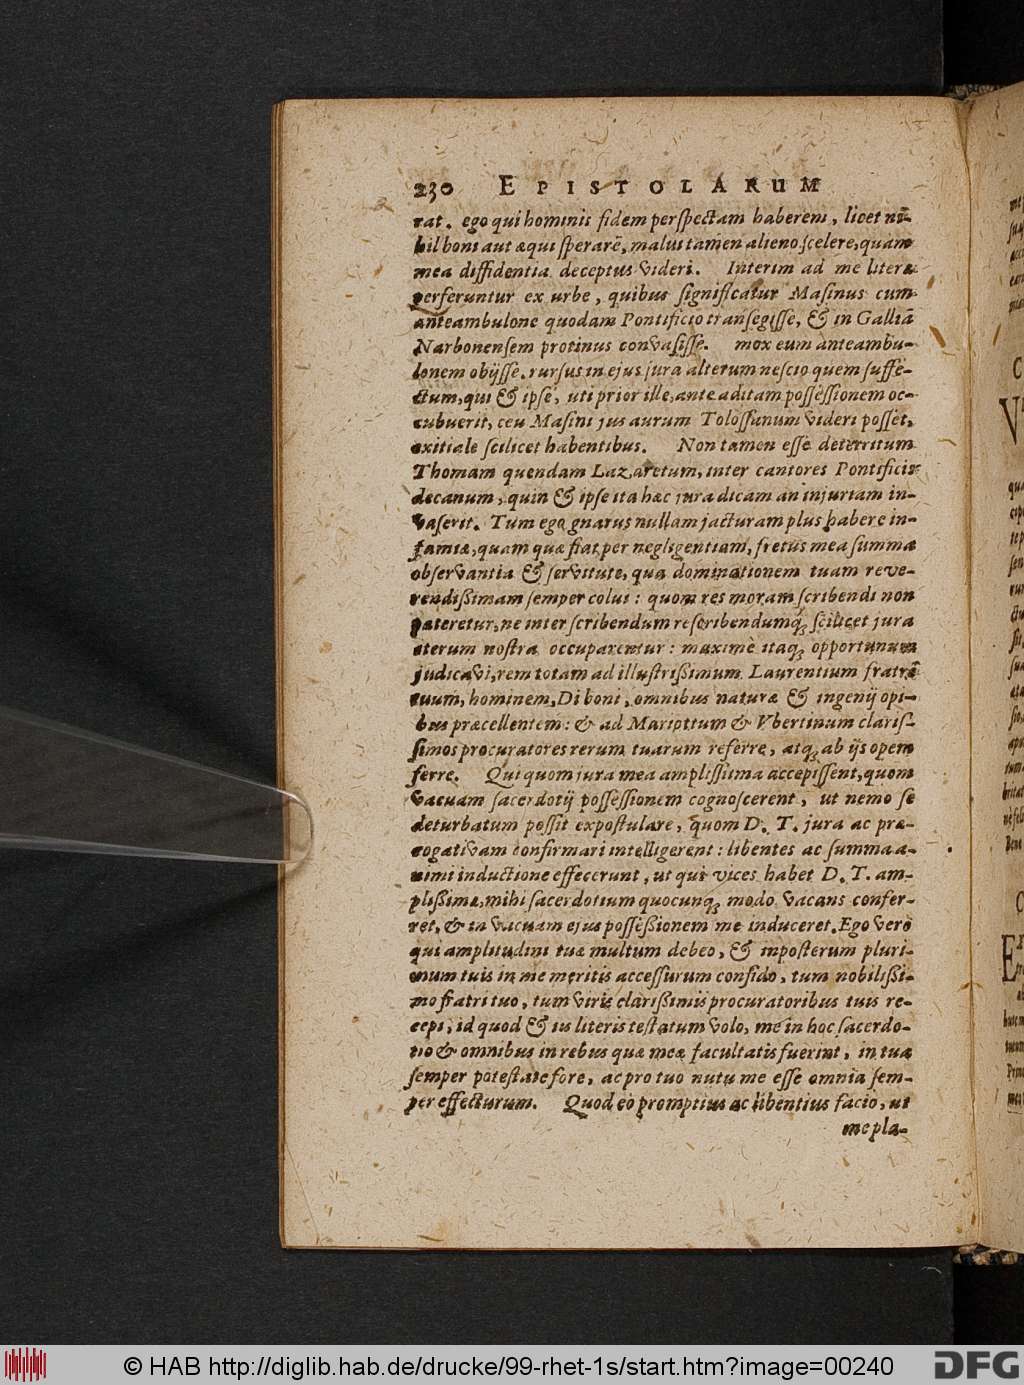 230 EPISTOLARUM
rat. ego qui hominis fidem perspectam haberem, licet nī-
hil boni aut æqui sperarē, malui tamen alieno scelere, quam
mea diffidentia deceptus videri. Interim ad me literæ
perferuntur ex urbe, quibus significatur Masinus cum
anteambulone quodam Pontificio transegisse, & in Galliā
Narbonensem protinus convasisse. mox eum anteambu-
lonem obijsse. rursus in ejus jura alterum nescio quem suffe-
ctum, qui & ipse, uti prior ille, ante aditam possessionem oc-
cubuerit, ceu Masini jus aurum Tolossanum videri posset,
exitiale scilicet habentibus. Non tamen esse deterritum
Thomam quendam Lazaretum, inter cantores Pontificis
decanum, quin & ipse ita hæc jura dicam an injuriam in-
vaserit. Tum ego gnarus nullam jacturam plus habere in-
famiæ, quam quæ fiat per negligentiam, fretus mea summa
observantia & servitute, qua dominationem tuam reve-
rendißimam semper colui: quom res moram scribendi non
pateretur, ne inter scribendum rescribendumq; scilicet jura
iterum nostra occuparentur: maximè itaq; opportunum
judicavi, rem totam ad illustrißimum Laurentium fratrē
tuum, hominem, Di boni, omnibus naturæ & ingenij opi-
bus præcellentem: & ad Mariottum & Vbertinum claris-
simos procuratores rerum tuarum referre, atq; ab ijs opem
ferre. Qui quom jura mea amplissima accepissent, quom
vacuam sacerdotij possessionem cognoscerent, ut nemo se
deturbatum possit expostulare, quom D. T. jura ac præ-
rogativam confirmari intelligerent: libentes ac summa a-
nimi inductione effecerunt, ut qui vices habet D. T. am-
plißimæ, mihi sacerdotium quocunq; modo vacans confer-
ret, & in vacuam ejus posseßionem me induceret. Ego verò
qui amplitudini tuæ multum debeo, & imposterum pluri-
mum tuis in me meritis accessurum confido, tum nobilißi-
mo fratri tuo, tum viris clarißimis procuratoribus tuis re-
cepi, id quod & in literis testatum volo, me in hoc sacerdo-
tio & omnibus in rebus quæ meæ facultatis fuerint, in tua
semper potestate fore, ac pro tuo nutu me esse omnia sem-
per effecturum. Quod eò promptius ac libentius facio, ut
me pla-
© HAB http://diglib.hab.de/drucke/99-rhet-1s/start.htm?image=00240
DFG